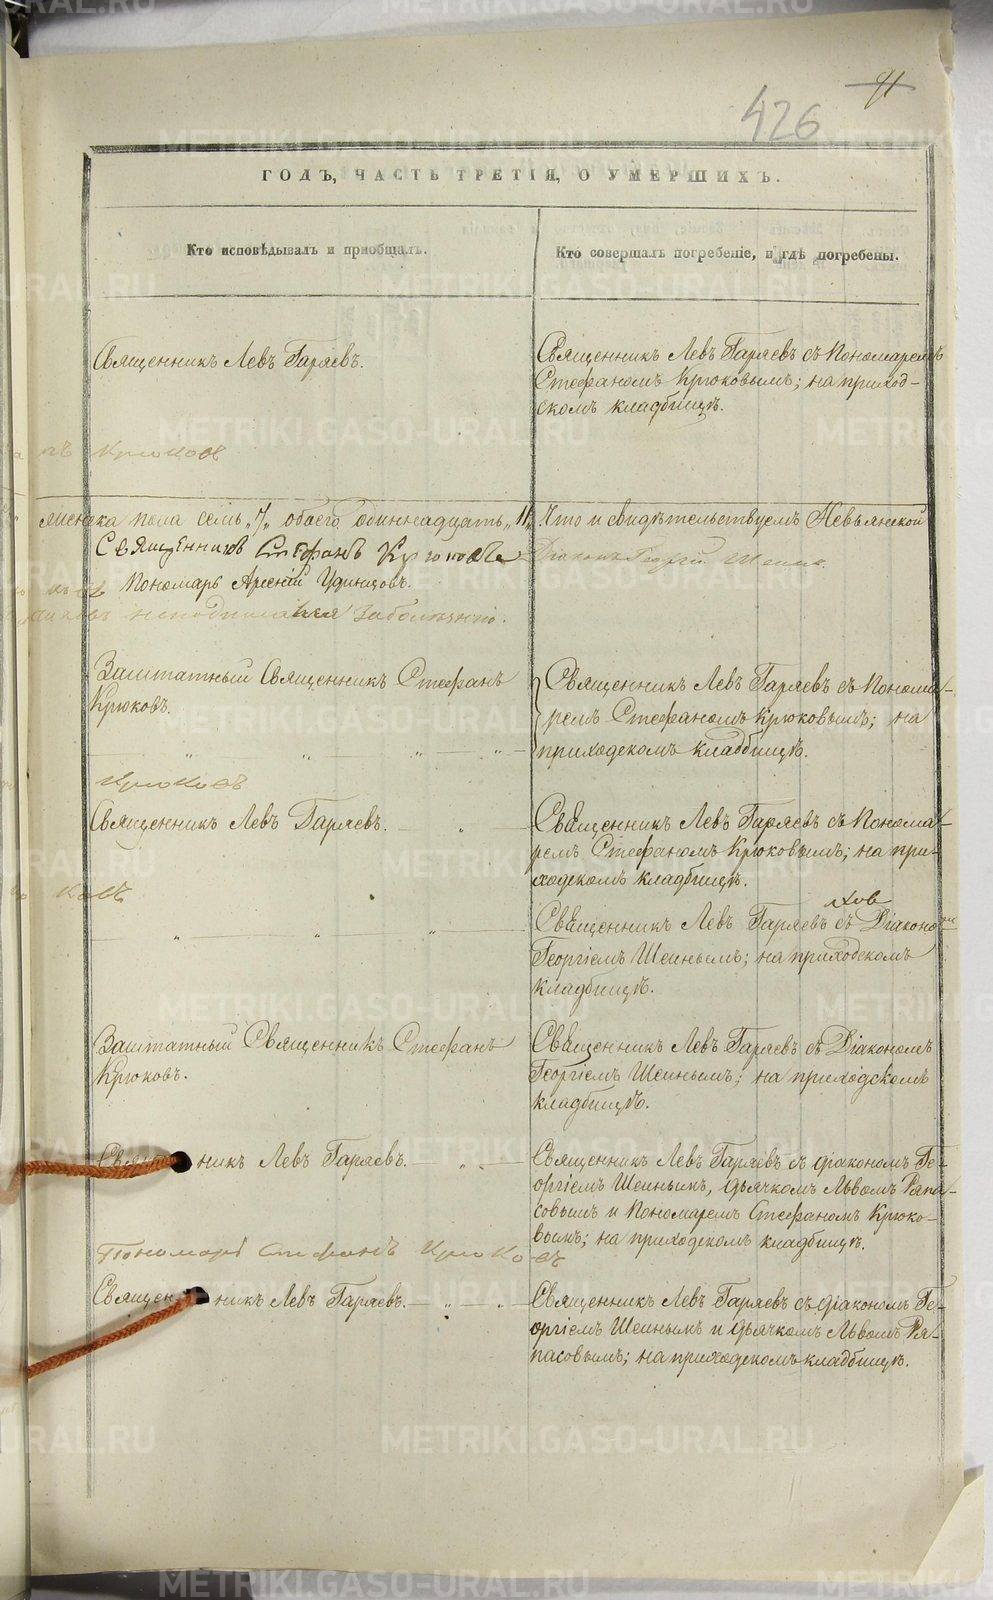 91
426
ГОДЪ, ЧАСТЬ ТРЕТІЯ, О УМЕРШИХЪ.
Кто исповѣдывалъ и пріобщалъ.
Кто совершалъ погребеніе, и гдѣ погребены.
Священникъ Левъ Гаряевъ.
Священникъ Левъ Гаряевъ съ Пономаремъ
Стефаномъ Крюковымъ; на приход-
скомъ кладбищѣ.
Крюковъ
пола семь „7„ обоего одиннадцать „11„ Что и свидѣтельствуемъ Невьянской
Священникъ Стефанъ Крюковъ
Діаконъ Георгій Шеинъ.
Пономарь Арсеній Удинцовъ.
Заштатный Священникъ Стефанъ
Крюковъ.
Священникъ Левъ Гаряевъ съ Понома-
ремъ Стефаномъ Крюковымъ; на
приходскомъ кладбищѣ.
Крюковъ
Священникъ Левъ Гаряевъ.
Священникъ Левъ Гаряевъ съ Понома-
ремъ Стефаномъ Крюковымъ; на при-
ходскомъ кладбищѣ.
ковъ
Священникъ Левъ Гаряевъ съ Діакономъ
Георгіемъ Шеинымъ; на приходскомъ
кладбищѣ.
Заштатный Священникъ Стефанъ
Крюковъ.
Священникъ Левъ Гаряевъ съ Діакономъ
Георгіемъ Шеинымъ; на приходскомъ
кладбищѣ.
Священникъ Левъ Гаряевъ.
Священникъ Левъ Гаряевъ съ Діакономъ Ге-
оргіемъ Шеинымъ, дьячкомъ Львомъ Рапа-
совымъ и Пономаремъ Стефаномъ Крюко-
вымъ; на приходскомъ кладбищѣ.
Пономарь Стефанъ Крюковъ
Священникъ Левъ Гаряевъ.
Священникъ Левъ Гаряевъ съ діакономъ Ге-
оргіемъ Шеинымъ и дьячкомъ Львомъ Ра-
пасовымъ; на приходскомъ кладбищѣ.
METRIKI.GASO-URAL.RU